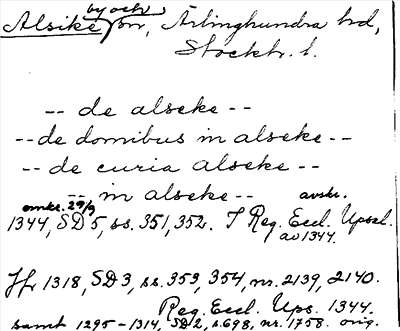 Alsike by och sn, Ärlinghundra hd,
Stockh. l.
-- de alseke --
-- de domibus in alseke --
-- de curia alseke --
-- in alseke -- avskr.
omkr. 29/9
1344, SD 5, ss. 351, 352. I Reg. Eccl. Upsal.
av 1344.
Jfr 1318, SD 3, ss. 353, 354, nr. 2139, 2140.
Reg. Eccl. Ups. 1344.
samt 1295-1314, SD 2, s. 698, nr. 1758. orig.